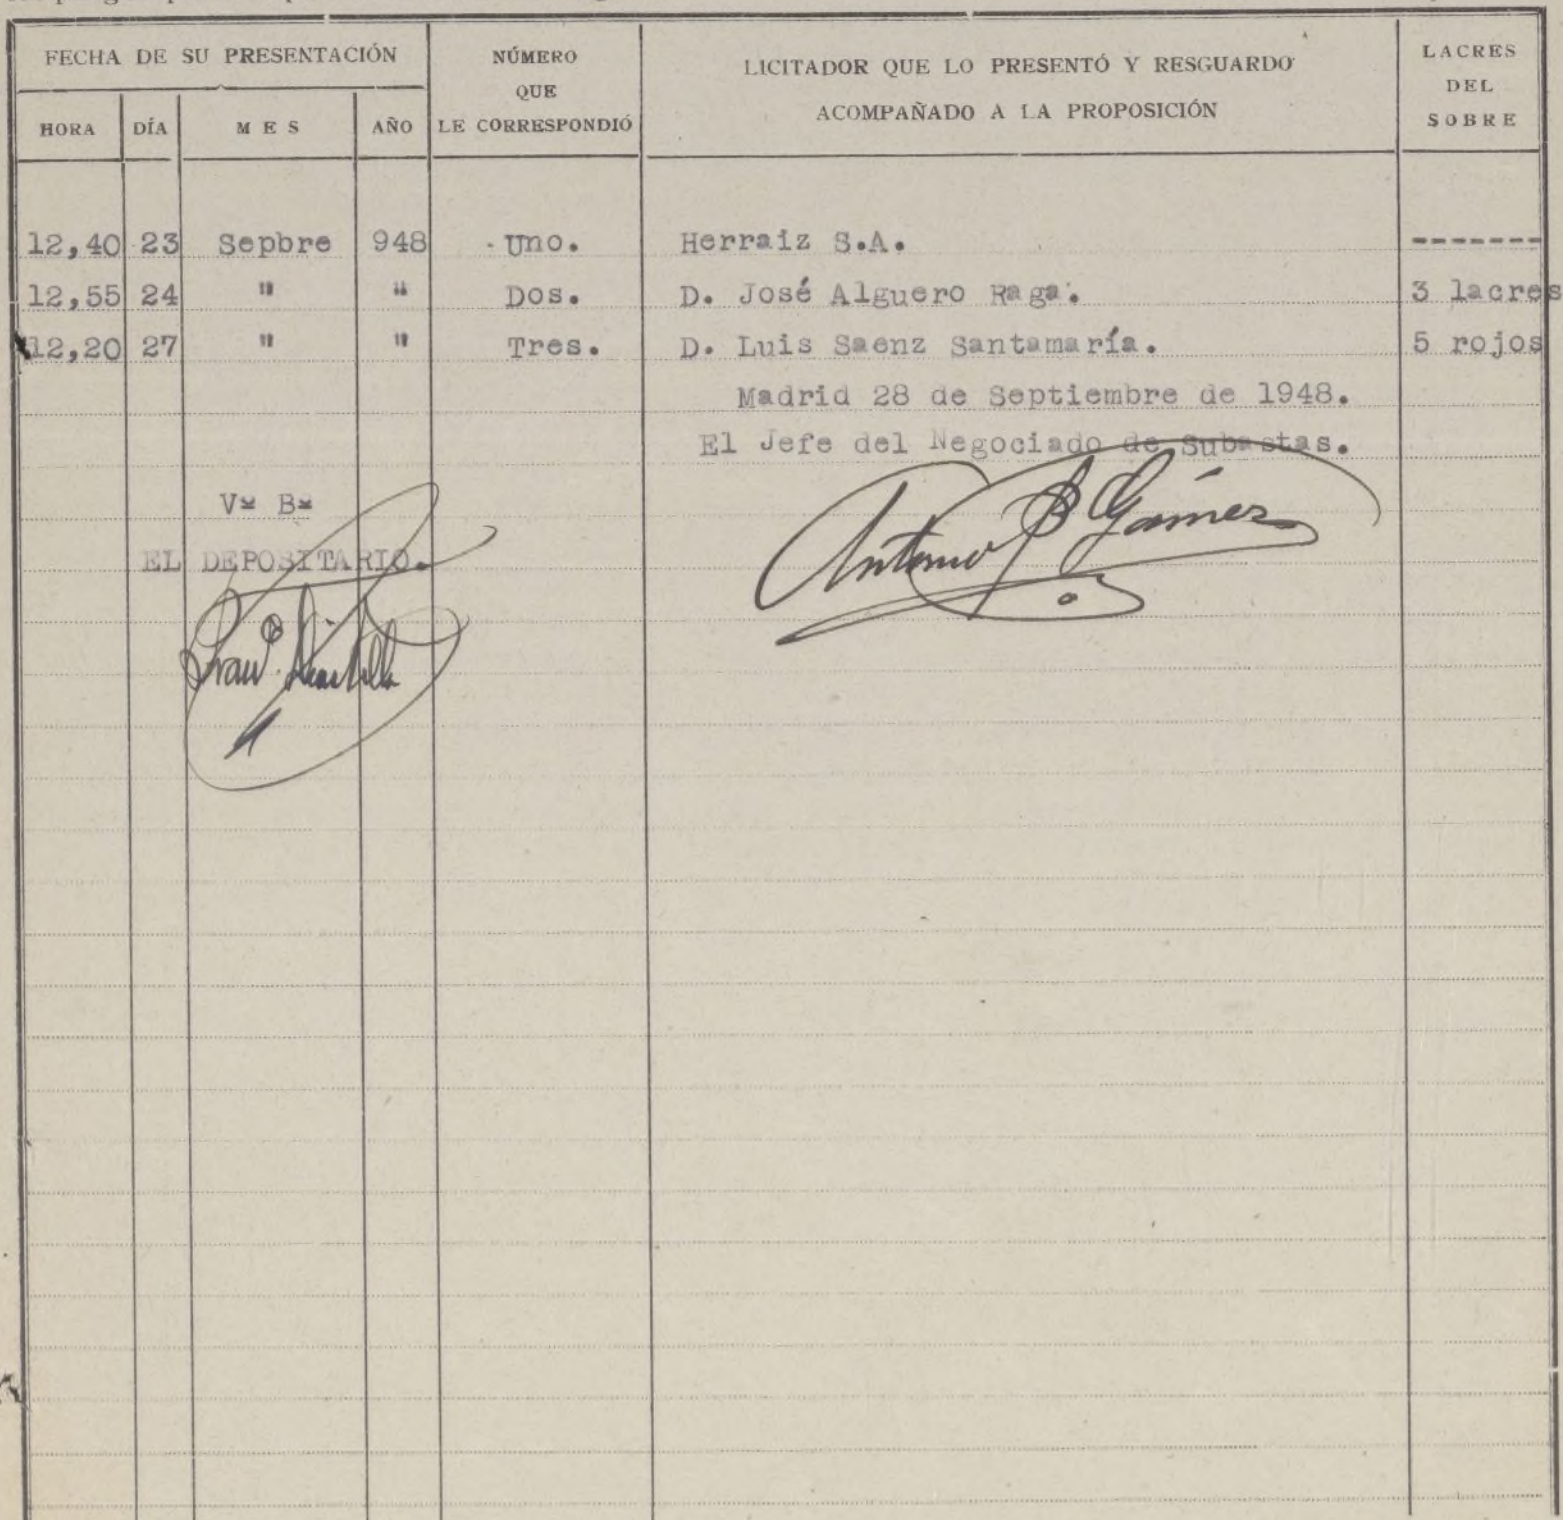 FECHA DE SU PRESENTACIÓN
NÚMERO
QUE
LE CORRESPONDIÓ
LICITADOR QUE LO PRESENTÓ Y RESGUARDO
ACOMPAÑADO A LA PROPOSICIÓN
LACRES
DEL
SOBRE
HORA DÍA MES AÑO
12,40 23 Sepbre 948 Uno. Herraiz S.A. -------
12,55 24 " " Dos. D. José Alguero Raga. 3 lacres
12,20 27 " " Tres. D. Luis Saenz Santamaría. 5 rojos
Madrid 28 de Septiembre de 1948.
El Jefe del Negociado de Subastas.
Vº Bº
EL DEPOSITARIO.
Antonio